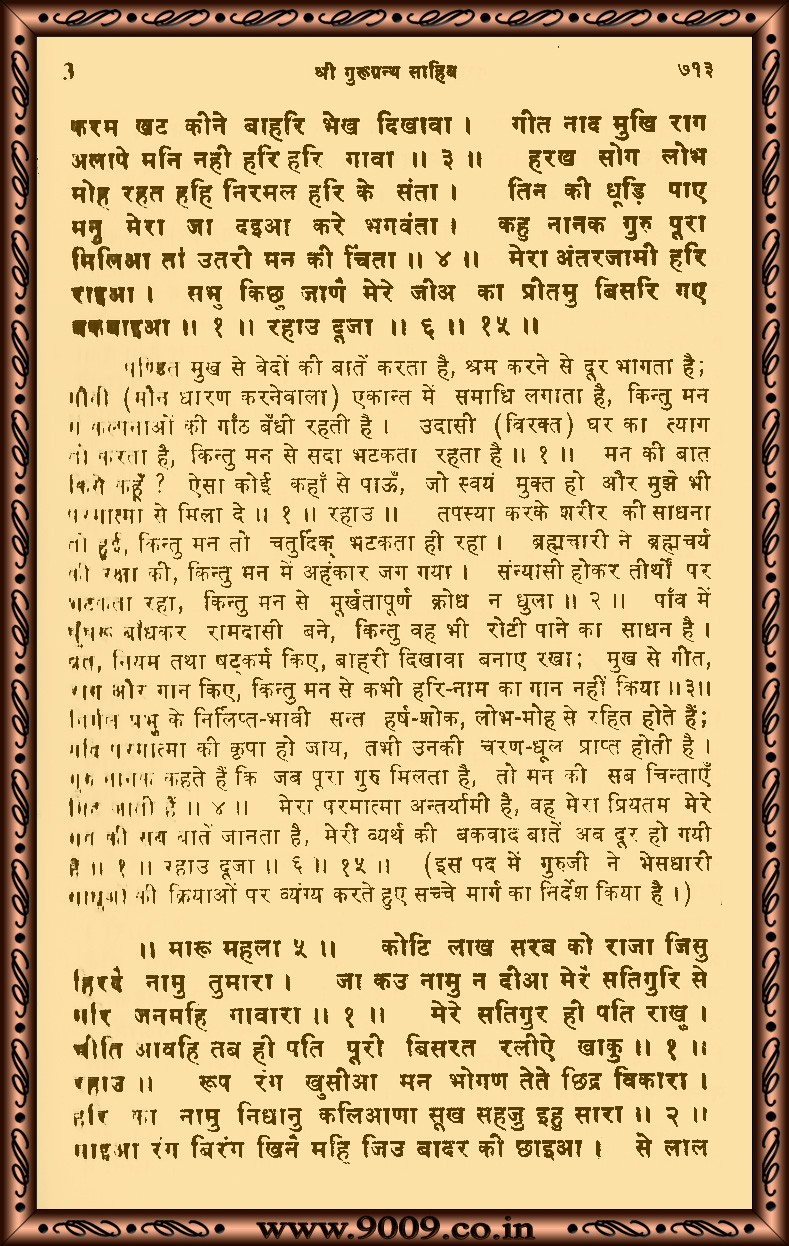 3 श्री गुरूग्रन्थ साहिब ७१३
करम खट कीने बाहरि भेख दिखावा । गीत नाद मुखि राग
अलापे मनि नही हरि हरि गावा ॥ ३ ॥ हरख सोग लोभ
मोह रहत हहि निरमल हरि के संता । तिन की धूड़ि पाए
मनु मेरा जा दइआ करे भगवंता । कहु नानक गुरु पूरा
मिलिआ तां उतरी मन की चिंता ॥ ४ ॥ मेरा अंतरजामी हरि
राइआ । सभु किछु जाणै मेरे जीअ का प्रीतमु बिसरि गए
बकबाइआ ॥ १ ॥ रहाउ दूजा ॥ ६ ॥ १५ ॥
पण्डित मुख से वेदों की बातें करता है, श्रम करने से दूर भागता है;
मौनी (मौन धारण करनेवाला) एकान्त में समाधि लगाता है, किन्तु मन
में कल्पनाओं की गाँठ बँधी रहती है । उदासी (विरक्त) घर का त्याग
तो करता है, किन्तु मन से सदा भटकता रहता है ॥ १ ॥ मन की बात
किसे कहूँ ? ऐसा कोई कहाँ से पाऊँ, जो स्वयं मुक्त हो और मुझे भी
परमात्मा से मिला दे ॥ १ ॥ रहाउ ॥ तपस्या करके शरीर की साधना
तो हुई, किन्तु मन तो चतुर्दिक् भटकता ही रहा । ब्रह्मचारी ने ब्रह्मचर्य
की रक्षा की, किन्तु मन में अहंकार जग गया । संन्यासी होकर तीर्थों पर
भटकता रहा, किन्तु मन से मूर्खतापूर्ण क्रोध न धुला ॥ २ ॥ पाँव में
घुँघरू बाँधकर रामदासी बने, किन्तु वह भी रोटी पाने का साधन है ।
व्रत, नियम तथा षट्कर्म किए, बाहरी दिखावा बनाए रखा; मुख से गीत,
राग और गान किए, किन्तु मन से कभी हरि-नाम का गान नहीं किया ॥३॥
निर्मल प्रभु के निर्लिप्त-भावी सन्त हर्ष-शोक, लोभ-मोह से रहित होते हैं;
यदि परमात्मा की कृपा हो जाय, तभी उनकी चरण-धूल प्राप्त होती है ।
गुरु नानक कहते हैं कि जब पूरा गुरु मिलता है, तो मन की सब चिन्ताएँ
मिट जाती हैं ॥ ४ ॥ मेरा परमात्मा अन्तर्यामी है, वह मेरा प्रियतम मेरे
मन की सब बातें जानता है, मेरी व्यर्थ की बकवाद बातें अब दूर हो गयी
हैं ॥ १ ॥ रहाउ दूजा ॥ ६ ॥ १५ ॥ (इस पद में गुरुजी ने भेसधारी
साधुओं की क्रियाओं पर व्यंग्य करते हुए सच्चे मार्ग का निर्देश किया है ।)
॥ मारू महला ५ ॥ कोटि लाख सरब को राजा जिसु
हिरदै नामु तुमारा । जा कउ नामु न दीआ मेरै सतिगुरि से
मरि जनमहि गावारा ॥ १ ॥ मेरे सतिगुर ही पति राखु ।
चीति आवहि तब ही पति पूरी बिसरत रलीऐ खाकु ॥ १ ॥
रहाउ ॥ रूप रंग खुसीआ मन भोगण तेते छिद्र विकारा ।
हरि का नामु निधानु कलिआणा सूख सहजु इहु सारा ॥ २ ॥
माइआ रंग बिरंग खिनै महि जिउ बादर की छाइआ । से लाल
www.9009.co.in